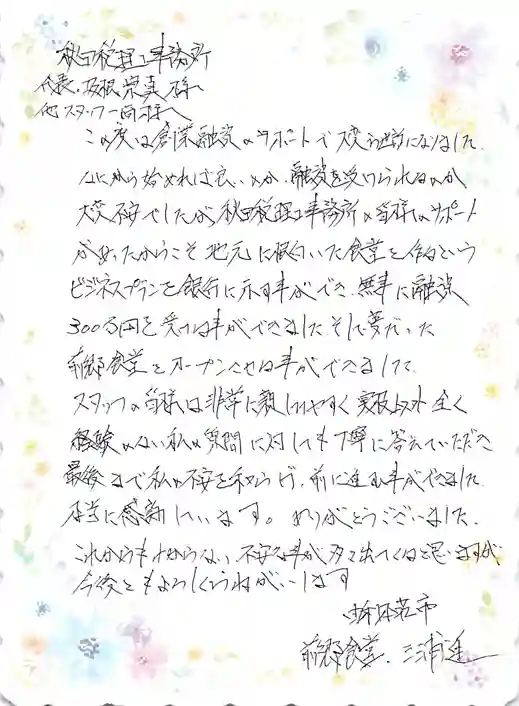 秋田税理士事務所
代表 坂根崇真 様へ
他スタッフ一同様へ
この度は創業融資のサポートで大変お世話になりました。
なにから始めれば良いのか、融資を受けられるのか
大変不安でしたが、秋田税理士事務所の皆様のサポート
があったからこそ地元に根付いた食堂を作るという
ビジネスプランを銀行に示す事ができ、無事に融資
300万円を受ける事ができました。そして夢だった
前郷食堂をオープンさせる事ができました。
スタッフの皆様は非常に親しみやすく実務以外全く
経験のない私の質問に対しても丁寧に答えていただき
最後まで私の不安を和らげ、前に進む事ができました。
本当に感謝しています。ありがとうございました。
これからもわからない、不安な事が多々出てくると思いますが、
今後ともよろしくおねがいします
由利本荘市
前郷食堂 三浦進一